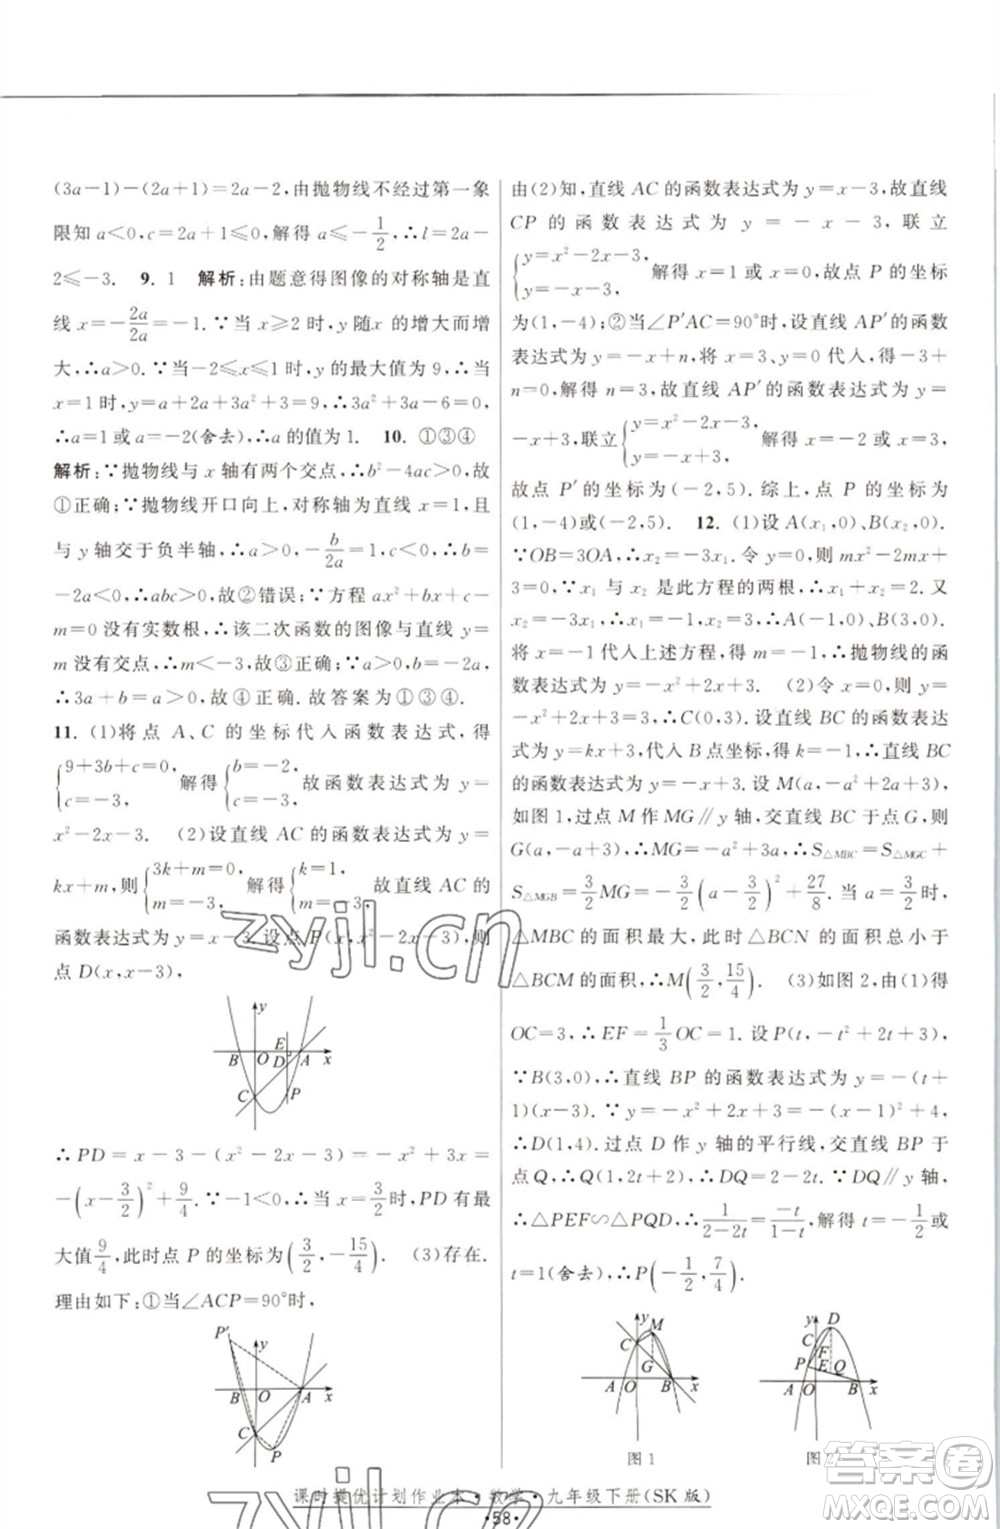 (3a-1)-(2a+1)=2a-2,由抛物线不经过第一象
限知 a<0,c=2a+1≤0,解得 a≤-1/2,∴l=2a-
2≤-3. 9. 1 解析:由题意得图像的对称轴是直
线 x=-2a/2a=-1.∵当 x≥2 时,y 随 x 的增大而增
大,∴a>0.∵-2≤x≤1 时,y 的最大值为 9,∴当
x=1 时,y=a+2a+3a²+3=9,∴3a²+3a-6=0,
∴a=1 或 a=-2(舍去),∴a 的值为 1. 10. ①③④
解析:∵抛物线与 x 轴有两个交点,∴b²-4ac>0,故
①正确;∵抛物线开口向上,对称轴为直线 x=1,且
与 y 轴交于负半轴,∴a>0,-b/2a=1,c<0,∴b=
-2a<0,∴abc>0,故②错误;∵方程 ax²+bx+c-
m=0 没有实数根,∴该二次函数的图像与直线 y=
m 没有交点,∴m<-3,故③正确;∵b=-2a,
∴3a+b=a>0,故④正确.故答案为①③④.
11. (1)将点 A、C 的坐标代入函数表达式,得
{9+3b+c=0, c=-3, 解得{b=-2, c=-3, 故函数表达式为 y=
x²-2x-3. (2)设直线 AC 的函数表达式为 y=
kx+m,则{3k+m=0, m=-3, 解得{k=1, m=-3, 故直线 AC 的
函数表达式为 y=x-3.设点 P(x,x²-2x-3),则
点 D(x,x-3),
y
E
B O D A x
C P
∴PD=x-3-(x²-2x-3)=-x²+3x=
-(x-3/2)²+9/4.∵-1<0,∴当 x=3/2时,PD 有最
大值9/4,此时点 P 的坐标为(3/2,-15/4). (3)存在.
理由如下:①当∠ACP=90°时,
P′ y
B O A x
C
P
由(2)知,直线 AC 的函数表达式为 y=x-3,故直线
CP 的函数表达式为 y=-x-3,联立
{y=x²-2x-3, 解得 x=1 或 x=0,故点 P 的坐标
为(1,-4);②当∠P′AC=90°时,设直线 AP′的函数
表达式为 y=-x+n,将 x=3,y=0 代入,得-3+
n=0,解得 n=3,故直线 AP′的函数表达式为 y=
-x+3,联立{y=x²-2x-3, y=-x+3, 解得 x=-2 或 x=3,
故点 P′的坐标为(-2,5).综上,点 P 的坐标为
(1,-4)或(-2,5). 12. (1)设 A(x₁,0)、B(x₂,0).
∵OB=3OA,∴x₂=-3x₁.令 y=0,则 mx²-2mx+
3=0.∵x₁ 与 x₂ 是此方程的两根,∴x₁+x₂=2.又
x₂=-3x₁,∴x₁=-1,x₂=3,∴A(-1,0)、B(3,0).
将 x=-1 代入上述方程,得 m=-1,∴抛物线的函
数表达式为 y=-x²+2x+3. (2)令 x=0,则 y=
-x²+2x+3=3,∴C(0,3).设直线 BC 的函数表达
式为 y=kx+3,代入 B 点坐标,得 k=-1,∴直线 BC
的函数表达式为 y=-x+3.设 M(a,-a²+2a+3),
如图 1,过点 M 作 MG∥y 轴,交直线 BC 于点 G,则
G(a,-a+3),∴MG=-a²+3a,∴S△MBC=S△MGC+
S△MGB=3/2MG=-3/2(a-3/2)²+27/8.当 a=3/2时,
△MBC 的面积最大,此时△BCN 的面积总小于
△BCM 的面积,∴M(3/2,15/4). (3)如图 2,由(1)得
OC=3,∴EF=1/3OC=1.设 P(t,-t²+2t+3),
∵B(3,0),∴直线 BP 的函数表达式为 y=-(t+
1)(x-3).∵y=-x²+2x+3=-(x-1)²+4,
∴D(1,4).过点 D 作 y 轴的平行线,交直线 BP 于
点 Q,∴Q(1,2t+2),∴DQ=2-2t.∵DQ∥y 轴,
∴△PEF∽△PQD,∴1/(2-2t)=-t/(1-t),∴t=-1/2或
t=1(舍去),∴P(-1/2,7/4).
y M
C
G
A O B x
图 1
y D
C
F
P E Q
A O B x
课时提优计划作业本·数学·九年级下册(SK 版)
·58·
zyjl.cn
答案卷